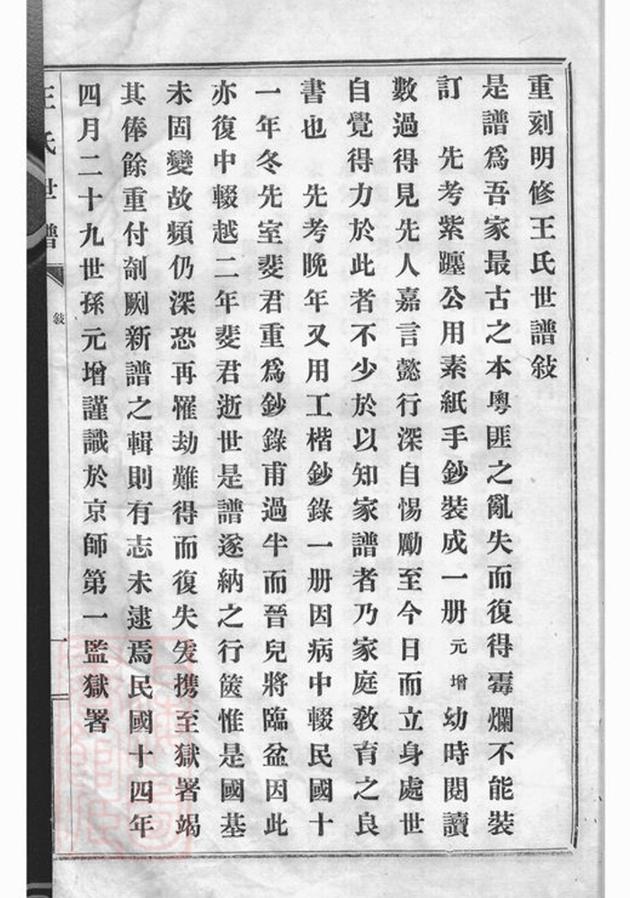 重刻明修王氏世譜敍
是譜爲吾家最古之本粵匪之亂失而復得霉爛不能裝
訂　先考紫躔公用素紙手鈔裝成一册元增幼時閱讀
數過得見先人嘉言懿行深自惕勵至今日而立身處世
自覺得力於此者不少於以知家譜者乃家庭敎育之良
書也　先考晚年又用工楷鈔錄一册因病中輟民國十
一年冬先室斐君重爲鈔錄甫過半而晉兒將臨盆因此
亦復中輟越二年斐君逝世是譜遂納之行篋惟是國基
未固變故頻仍深恐再罹劫難得而復失爰携至獄署竭
其俸餘重付剞劂新譜之輯則有志未逮焉民國十四年
四月二十九世孫元增謹識於京師第一監獄署
王氏世譜　敍　一